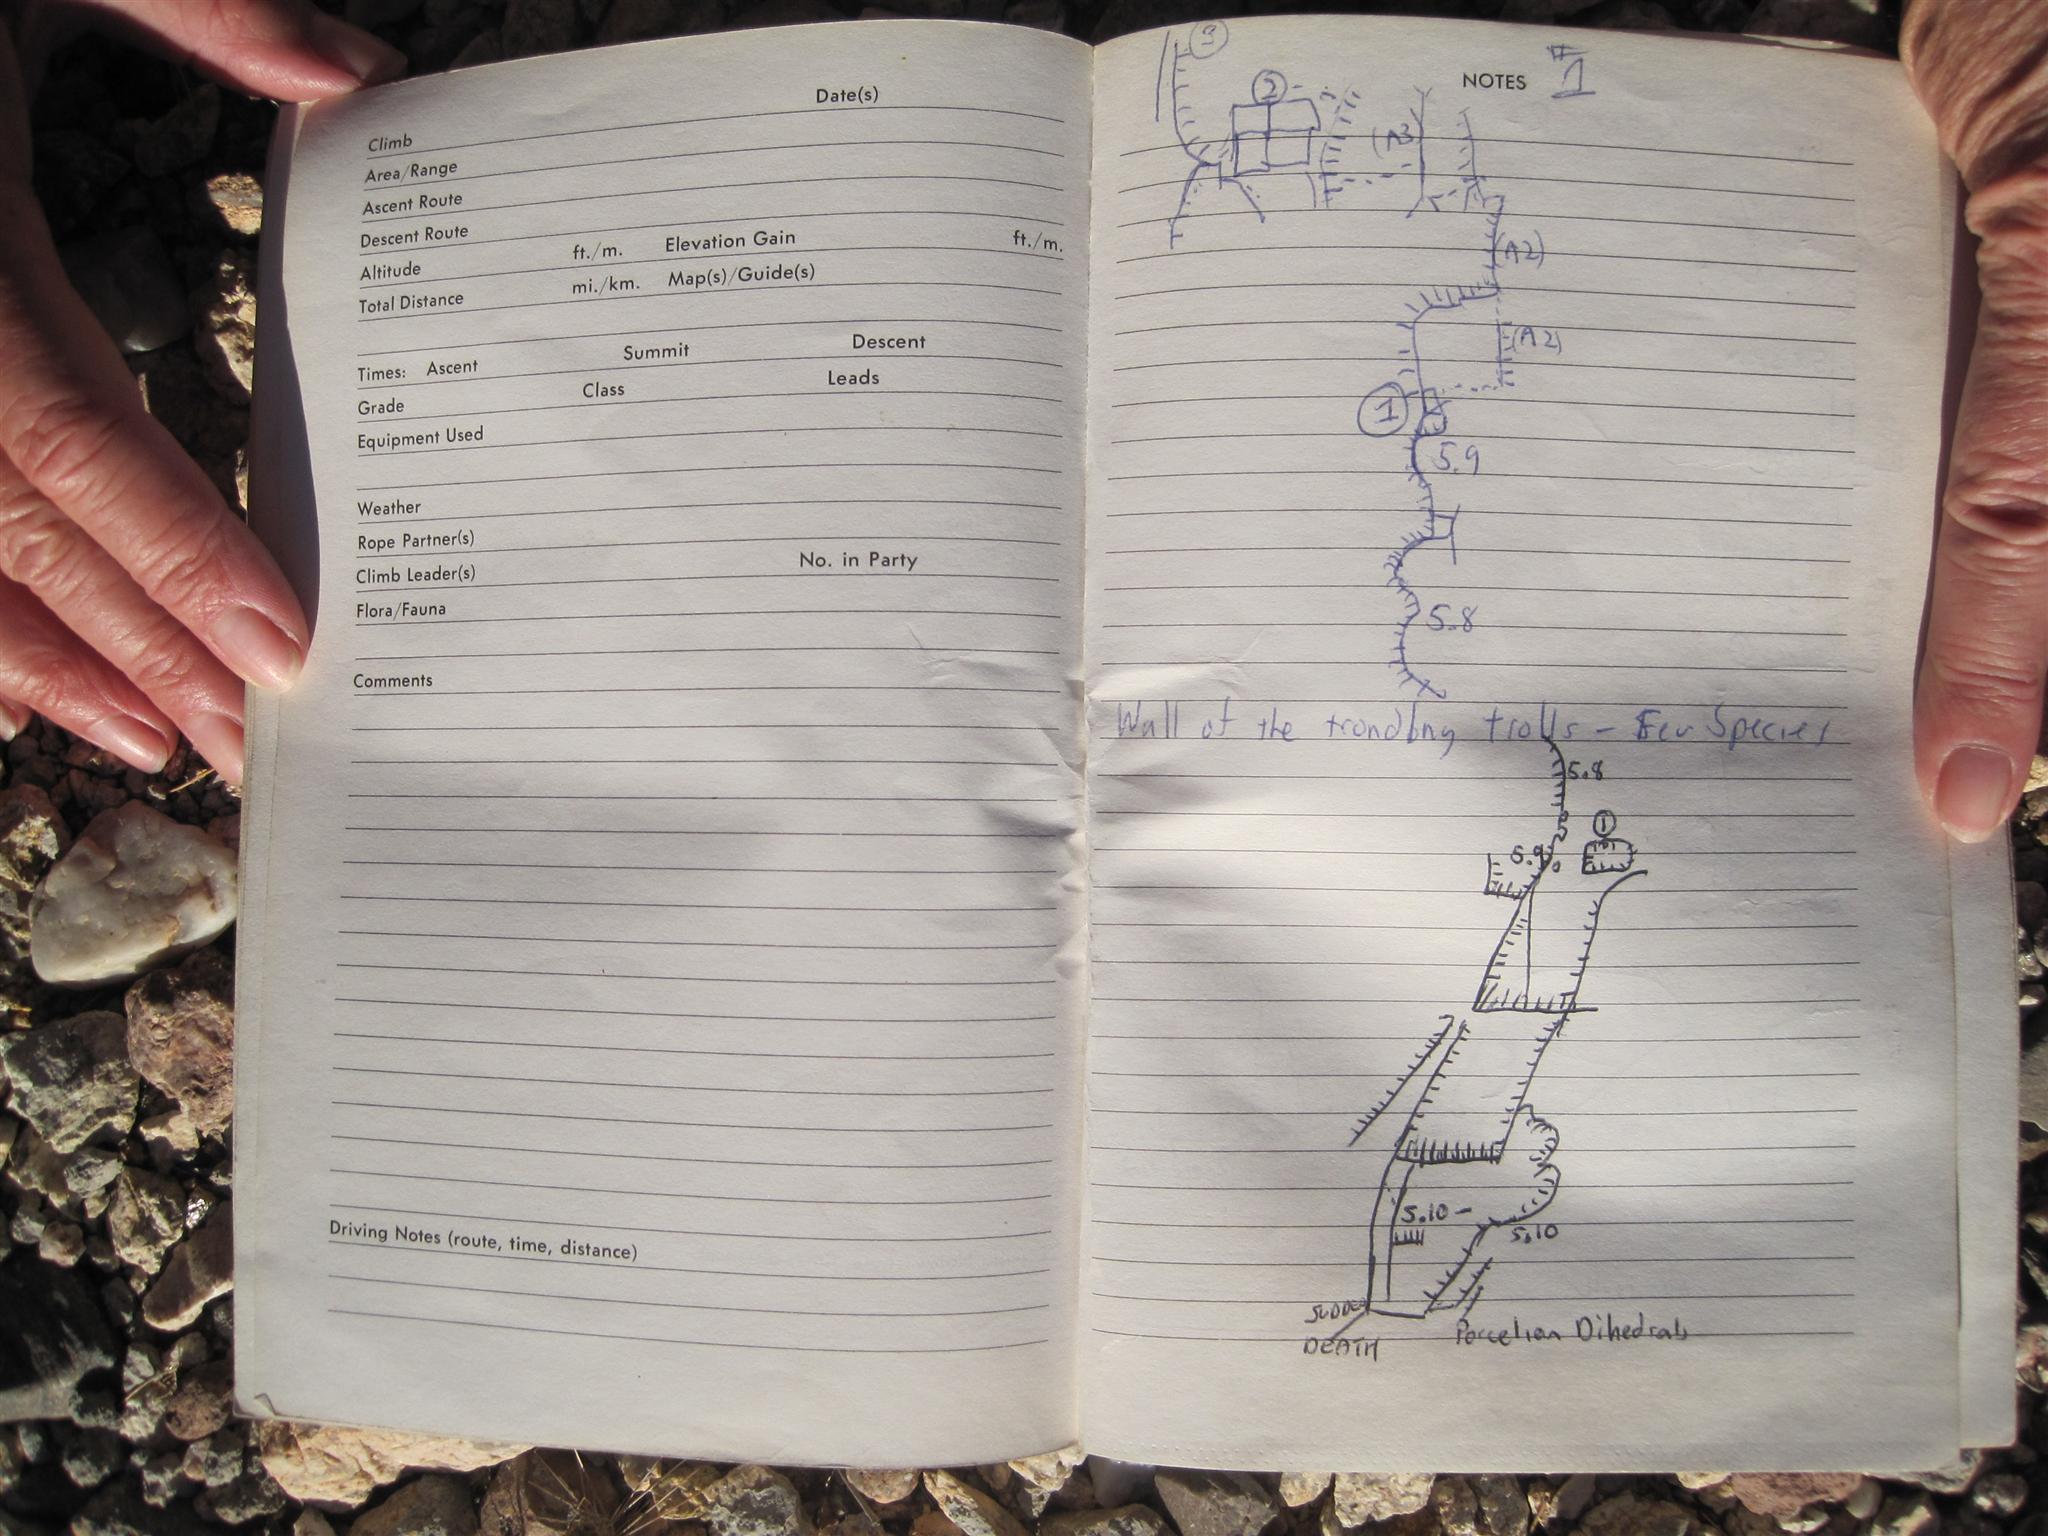 Date(s)
Climb
Area/Range
Ascent Route
Descent Route
Altitude ft./m. Elevation Gain ft./m.
Total Distance mi./km. Map(s)/Guide(s)
Times: Ascent Summit Descent
Grade Class Leads
Equipment Used
Weather
Rope Partner(s)
Climb Leader(s) No. in Party
Flora/Fauna
Comments
Driving Notes (route, time, distance)
3
NOTES #1
2
(A3)
(A2)
(A2)
1
5.9
5.8
Wall of the trondling trolls - Species
5.8
1
5.9
5.10 -
5.10
SUDDEN
DEATH
Porcelian Dihedrals